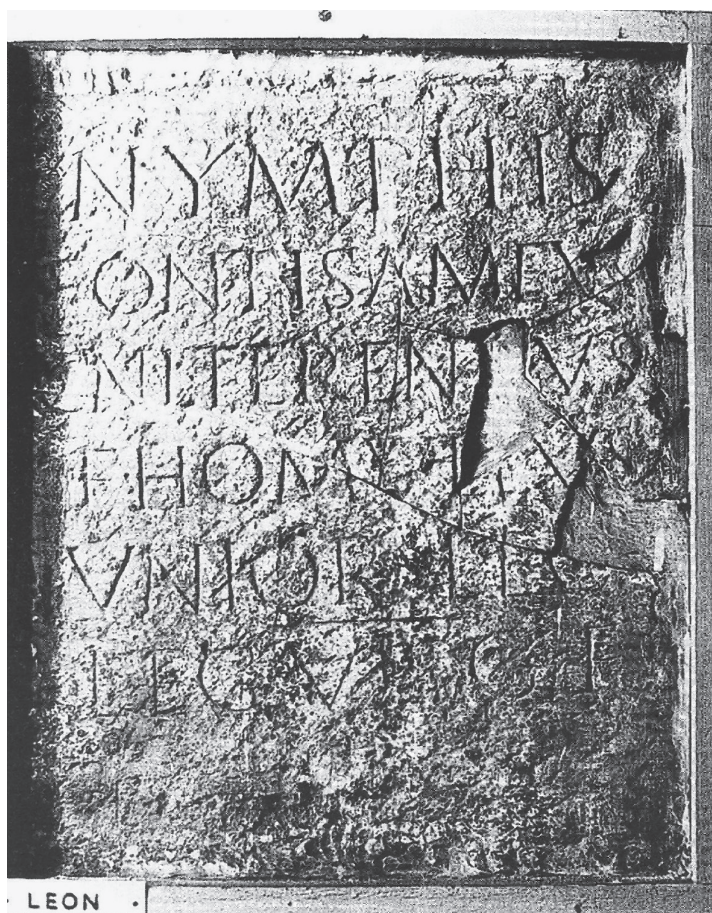 NYMPHIS
ONTIS AMEV
CNI L TERENTIVS
F HOMVLLVS
VNIOR LEG
LEG VII G F
LEON